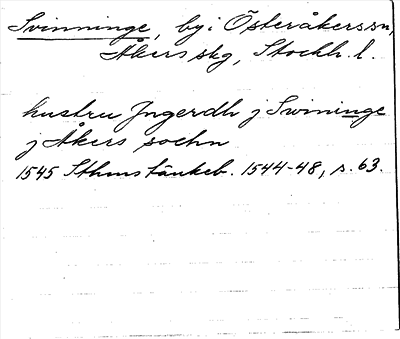 Svinninge, by i Österåkers sn,
Åkers skg, Stockh. l.
hustru Jngerdh j Swininge
j Akers sochn
1545 Sthms tänkeb. 1544-48, s. 63.